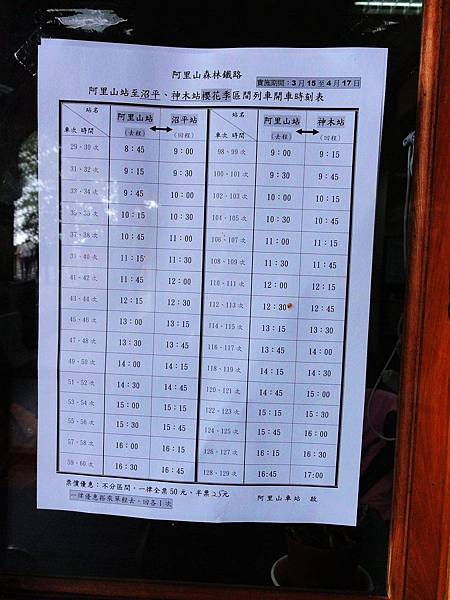 阿里山森林鐵路
實施期間：3月15至4月17日
阿里山站至沼平、神木站櫻花季區間列車開車時刻表
站名 阿里山站 沼平站 站名 阿里山站 神木站
車次 時間 （去程） （回程） 車次 時間 （去程） （回程）
29、30 次 8：45 9：00 98、99 次 9：00 9：15
31、32 次 9：15 9：30 100、101 次 9：30 9：45
33、34 次 9：45 10：00 102、103 次 10：00 10：15
35、36 次 10：15 10：30 104、105 次 10：30 10：45
37、38 次 10：45 11：00 106、107 次 11：00 11：15
39、40 次 11：15 11：30 108、109 次 11：30 11：45
41、42 次 11：45 12：00 110、111 次 12：00 12：15
43、44 次 12：15 12：30 112、113 次 12：30 12：45
45、46 次 13：00 13：15 114、115 次 13：15 13：30
47、48 次 13：30 13：45 116、117 次 13：45 14：00
49、50 次 14：00 14：15 118、119 次 14：15 14：30
51、52 次 14：30 14：45 120、121 次 14：45 15：00
53、54 次 15：00 15：15 122、123 次 15：15 15：30
55、56 次 15：30 15：45 124、125 次 15：45 16：00
57、58 次 16：00 16：15 126、127 次 16：15 16：30
59、60 次 16：30 16：45 128、129 次 16:45 17:00
票價優惠：不分區間，一律全票50元、半票25元 阿里山車站 啟
一律優惠搭乘單程去、回各1次